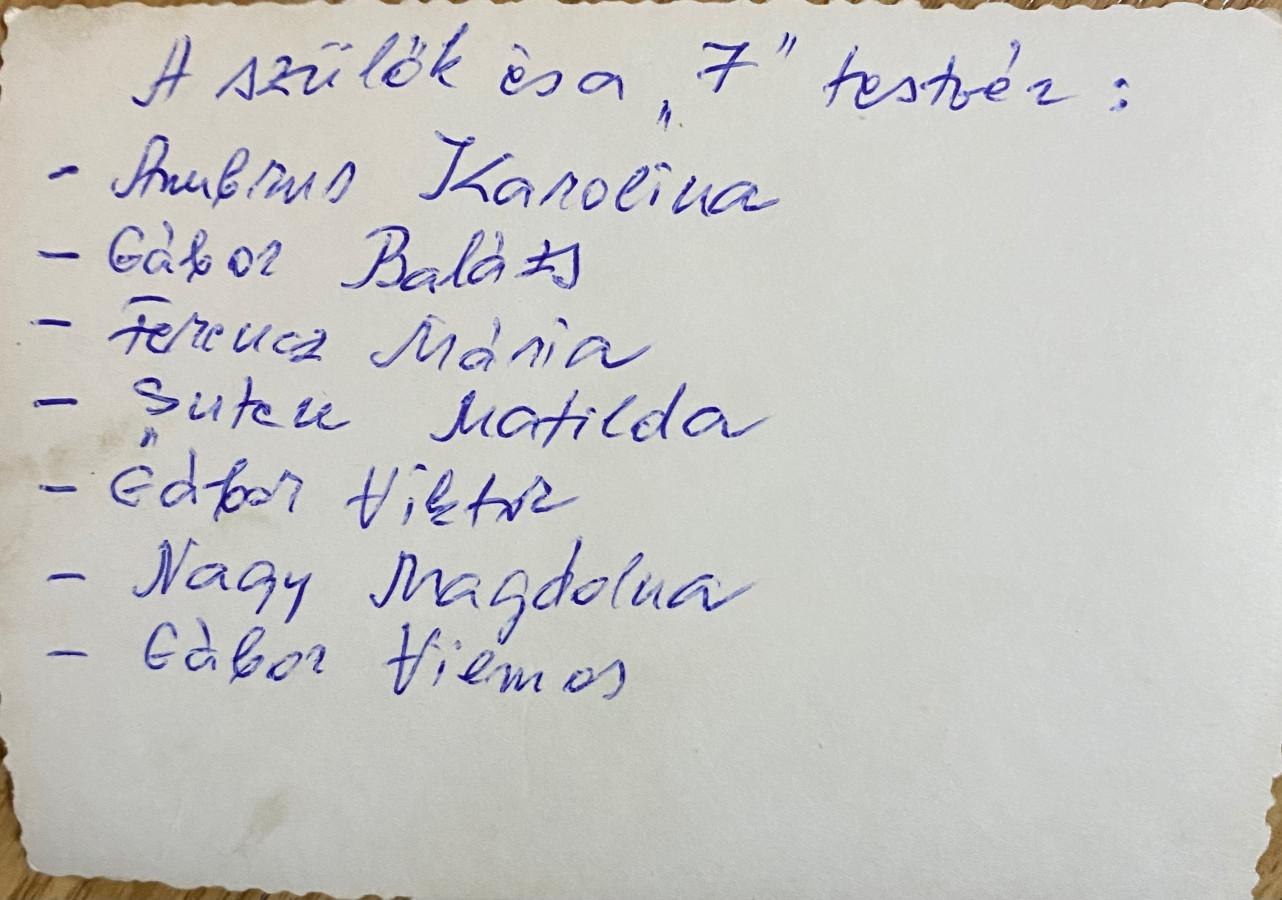 A szülők és a „7" testvér:
- Ambrus Karolina
- Gábor Balázs
- Ferencz Mária
- Şuteu Matilda
- Gábor Viktor
- Nagy Magdolna
- Gábor Vilmos